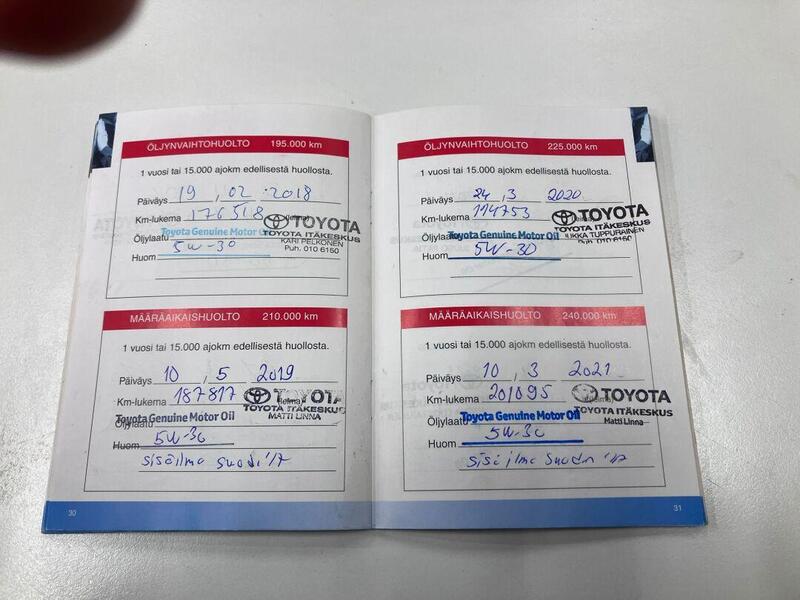 ÖLJYNVAIHTOHUOLTO 195.000 km
1 vuosi tai 15.000 ajokm edellisestä huollosta.
Päiväys 19 , 02 . 2018
Km-lukema 176518 (leima)
TOYOTA
TOYOTA ITÄKESKUS
KARI PELKONEN
Puh. 010 6150
Öljylaatu Toyota Genuine Motor Oil
5W-30
Huom
MÄÄRÄAIKAISHUOLTO 210.000 km
1 vuosi tai 15.000 ajokm edellisestä huollosta.
Päiväys 10 , 5 2019
Km-lukema 187817 (leima)
TOYOTA
TOYOTA ITÄKESKUS
MATTI LINNA
Öljylaatu Toyota Genuine Motor Oil
Huom 5W-30
sisäilma suod. '17
30
ÖLJYNVAIHTOHUOLTO 225.000 km
1 vuosi tai 15.000 ajokm edellisestä huollosta.
Päiväys 24 , 3 2020
Km-lukema 194753
TOYOTA
TOYOTA ITÄKESKUS
JUKKA TUPPURAINEN
Puh. 010 6150
Öljylaatu Toyota Genuine Motor Oil
Huom 5W-30
MÄÄRÄAIKAISHUOLTO 240.000 km
1 vuosi tai 15.000 ajokm edellisestä huollosta.
Päiväys 10 , 3 2021
Km-lukema 201095 (leima)
TOYOTA
TOYOTA ITÄKESKUS
Matti Linna
Öljylaatu Toyota Genuine Motor Oil
Huom 5W-30
sisäilma suodin '17
31